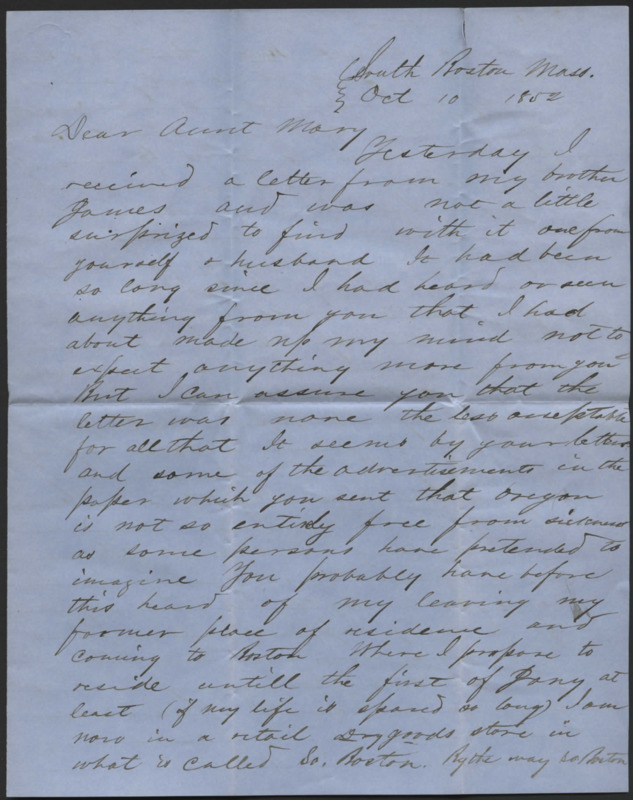 South Boston Mass.
Oct 10 1852
Dear Aunt Mary
Yesterday I
received a letter from my brother
James and was not a little
surprized to find with it one from
yourself & husband It had been
so long since I had heard or seen
anything from you that I had
about made up my mind not to
expect anything more from you
But I can assure you that the
letter was none the less acceptable
for all that It seems by your letter
and some of the advertisements in the
paper which you sent that Oregon
is not so entirely free from sickness
as some persons have pretended to
imagine You probably have before
this heard of my leaving my
former place of residence and
coming to Boston Where I propose to
reside untill the first of Jany at
least (if my life is spared so long) I am
now in a retail Drygoods store in
what is called So. Boston. By the way So Boston